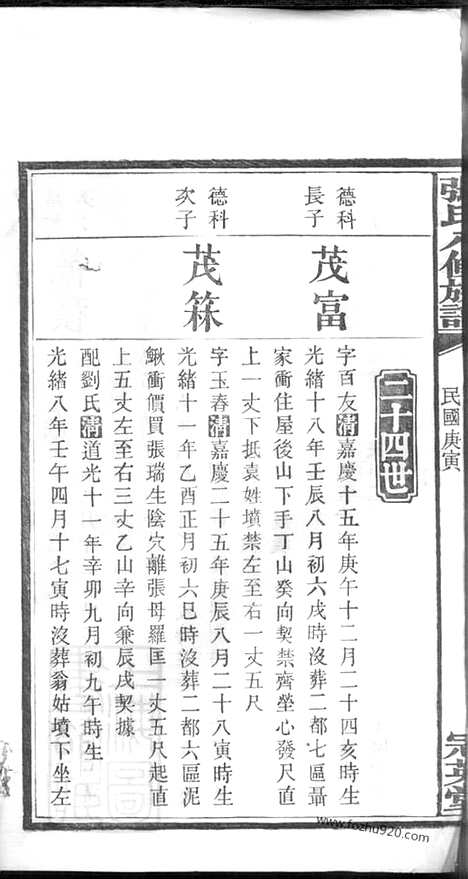 張氏八修族譜
民國庚寅
二十四世
德科
長子
茂富
字百友清嘉慶十五年庚午十二月二十四亥時生
光緒十八年壬辰八月初六戌時沒葬二都七區聶
家衝住屋後山下手丁山癸向契禁齊塋心發尺直
上一丈下抵袁姓墳禁左至右一丈五尺
德科
次子
茂箖
字玉春清嘉慶二十五年庚辰八月二十八寅時生
光緒十一年乙酉正月初六巳時沒葬二都六區泥
鰍衝價買張瑞生陰穴離張母羅匡一丈五尺起直
上五丈左至右三丈乙山辛向兼辰戌契據
配劉氏清道光十一年辛卯九月初九午時生
光緒八年壬午四月十七寅時沒葬翁姑墳下坐左
www.fozhu920.com